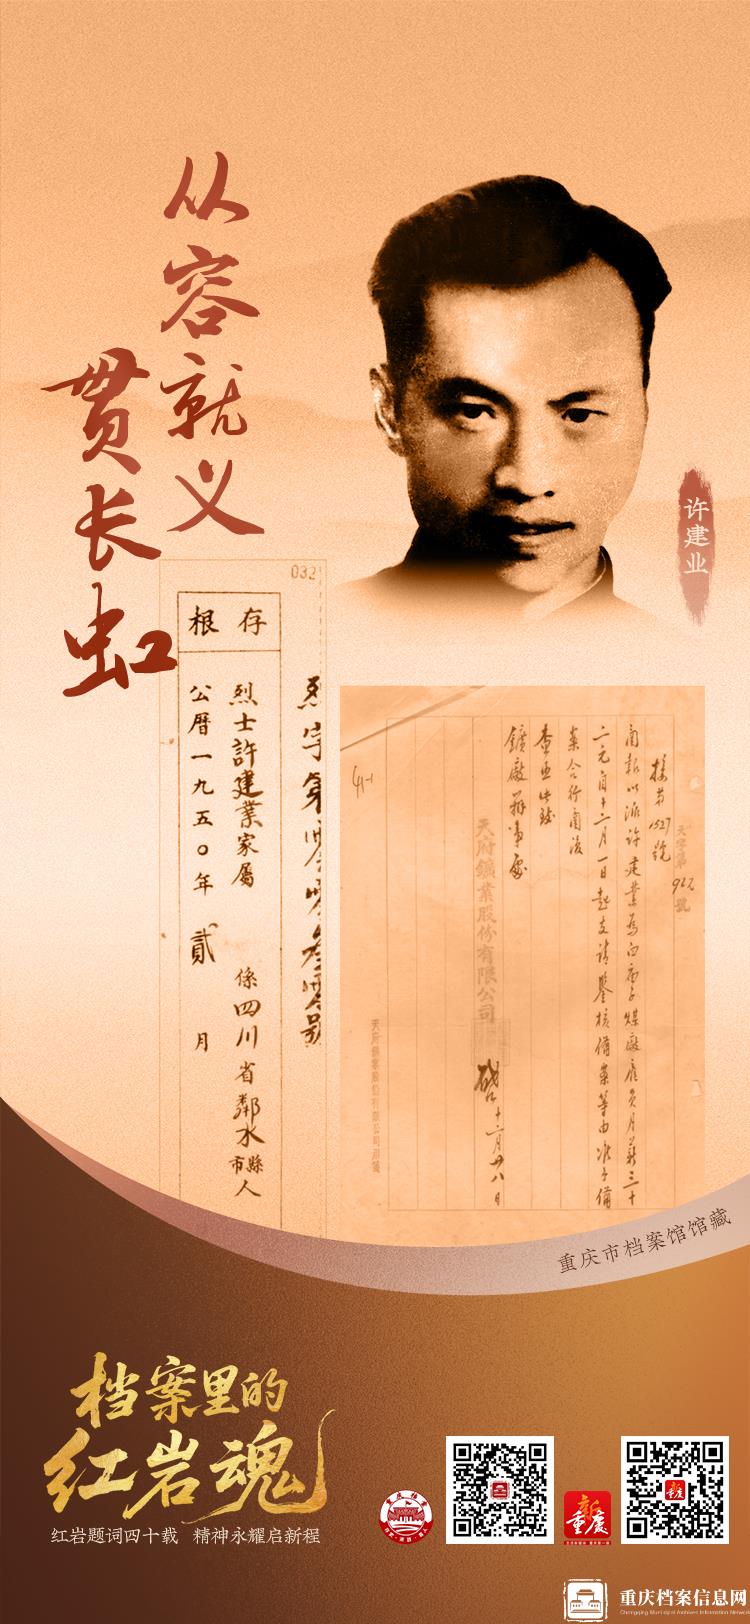 从容就义
贯长虹
许建业
032
存根
烈字第
烈士許建業家屬 係四川省鄰水市縣人
公曆一九五〇年 貳 月
天字第 922 號
接第1527號
函報以派許建業為白廟子煤廠雇員月薪三十
二元自十二月一日起支請鑒核備案等由准予備
案合行函復
查照此致
鑛廠辦事處
天府鑛業股份有限公司
啓 十二月廿八日
天府鑛業股份有限公司用箋
重庆市档案馆馆藏
档案里的
红岩魂
红岩题词四十载 精神永耀启新程
重庆档案
新重庆
重庆档案信息网
Chongqing Municipal Archives Information Network